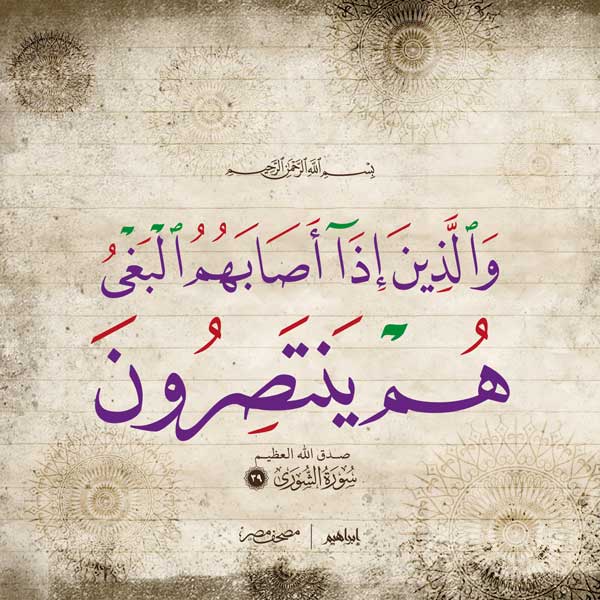 بِسْمِ ٱللَّهِ ٱلرَّحْمَٰنِ ٱلرَّحِيمِ
وَٱلَّذِينَ إِذَآ أَصَابَهُمُ ٱلْبَغْىُ
هُمْ يَنتَصِرُونَ
صدق الله العظيم
سُورَةُ الشُّورَىٰ ٣٩
إبراهيم | مصحف مصر